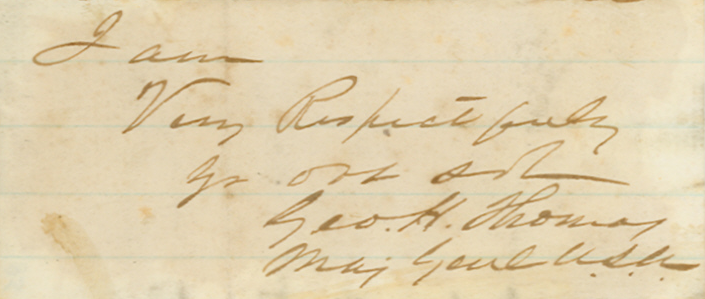 I am
Very Respectfully
Yr obt svt
Geo. H. Thomas
Maj Genl U.S.A.